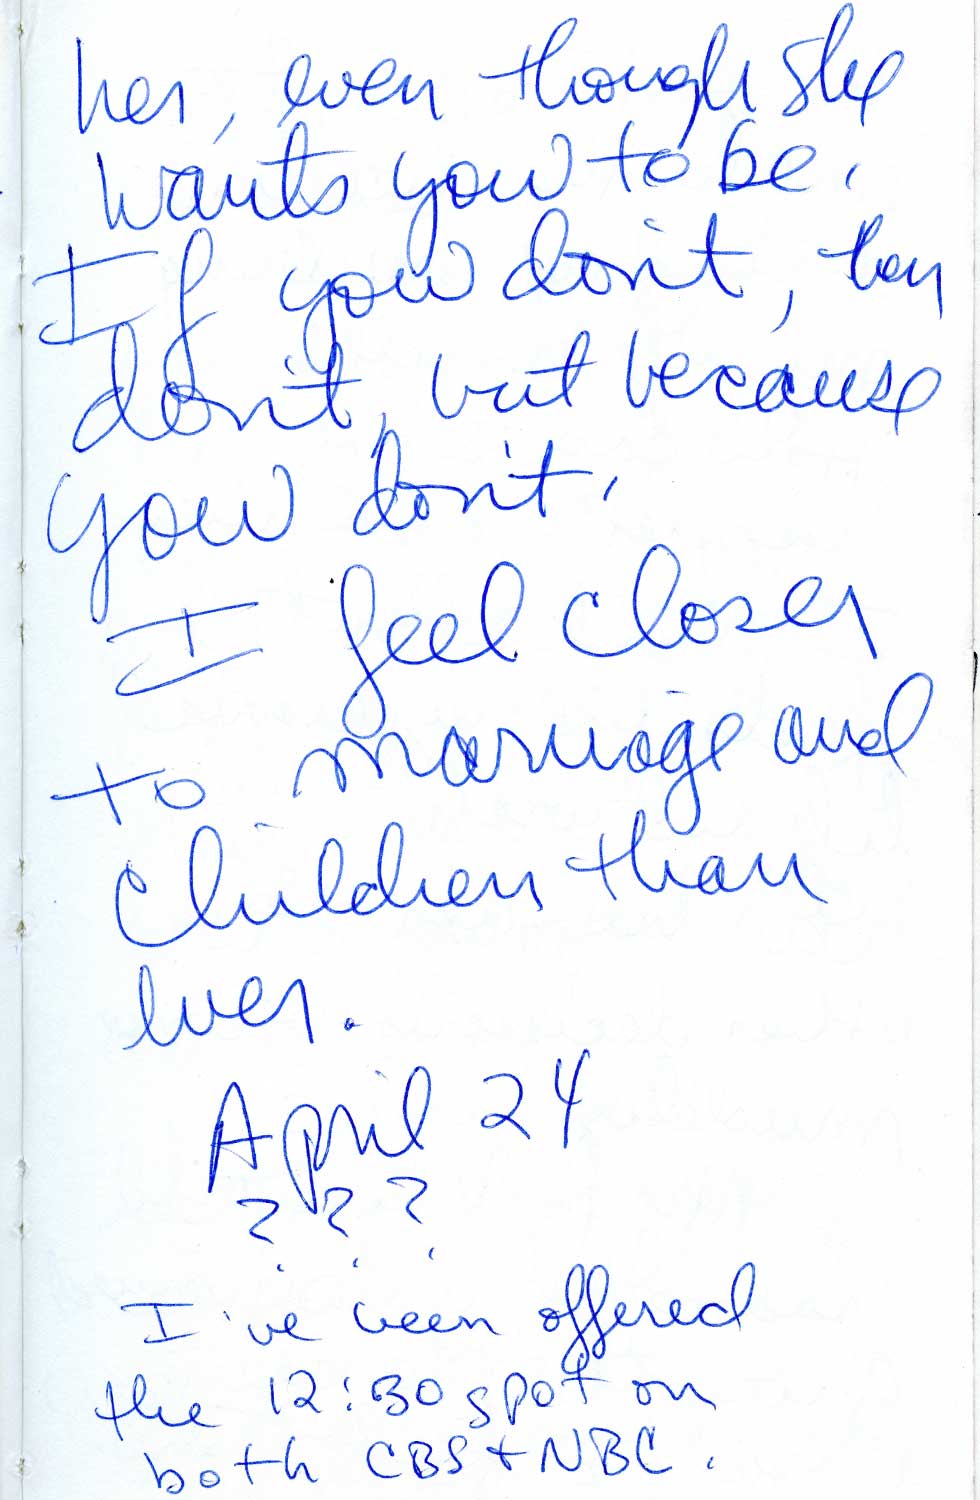 her, even though she
wants you to be.
If you don't, then
don't, but because
you don't.
I feel closer
to marriage and
children than
ever.
April 24
? ? ?
I've been offered
the 12:30 spot on
both CBS + NBC.